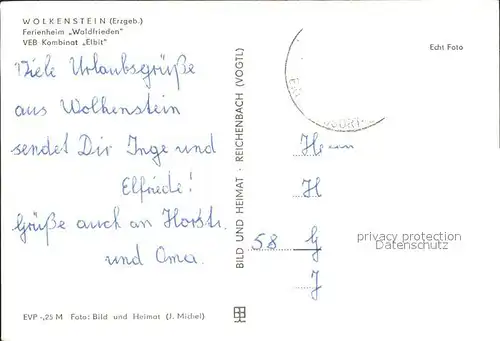 WOLKENSTEIN (Erzgeb.)
Ferienheim „Waldfrieden"
VEB Kombinat „Elbit"
Viele Urlaubsgrüße
aus Wolkenstein
sendet Dir Inge und
Elfriede!
Grüße auch an Horstr.
und Oma.
EVP -,25 M Foto: Bild und Heimat (J. Michel)
BILD UND HEIMAT · REICHENBACH (VOGTL)
Echt Foto
Herrn
H
58 G
J
privacy protection
Datenschutz